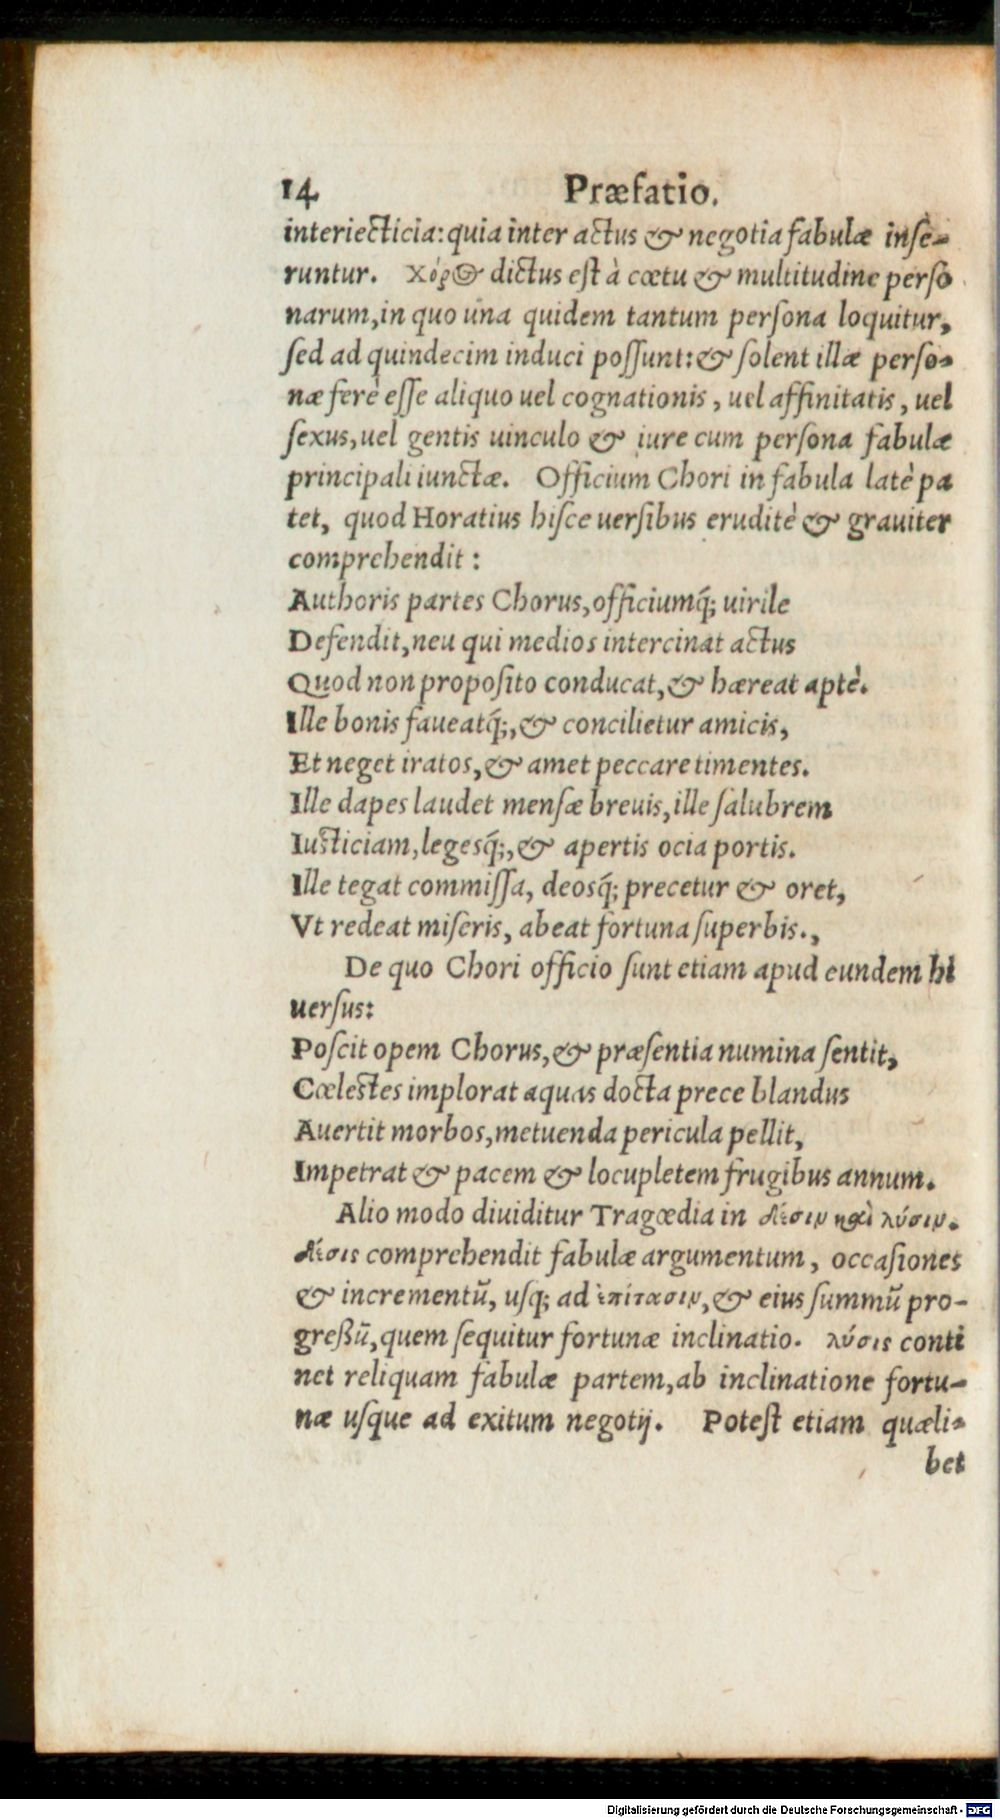 14 Præfatio.
interiecticia: quia inter actus & negotia fabulæ inſe-
runtur. Χόρος dictus eſt à cœtu & multitudine perſo
narum, in quo una quidem tantum perſona loquitur,
ſed ad quindecim induci poſſunt: & ſolent illæ perſo-
næ ferè eſſe aliquo uel cognationis, uel affinitatis, uel
ſexus, uel gentis uinculo & iure cum perſona fabulæ
principali iunctæ. Officium Chori in fabula latè pa
tet, quod Horatius hiſce uerſibus eruditè & grauiter
comprehendit:
Authoris partes Chorus, officiumq́; uirile
Defendit, neu qui medios intercinat actus
Quod non propoſito conducat, & hæreat aptè.
Ille bonis faueatq́;, & concilietur amicis,
Et neget iratos, & amet peccare timentes.
Ille dapes laudet menſæ breuis, ille ſalubrem
Iuſticiam, legesq́;, & apertis ocia portis.
Ille tegat commiſſa, deosq́; precetur & oret,
Vt redeat miſeris, abeat fortuna ſuperbis.,
De quo Chori officio ſunt etiam apud eundem hi
uerſus:
Poſcit opem Chorus, & præſentia numina ſentit,
Cœleſtes implorat aquas docta prece blandus
Auertit morbos, metuenda pericula pellit,
Impetrat & pacem & locupletem frugibus annum.
Alio modo diuiditur Tragœdia in δέσιν καὶ λύσιν.
δέσις comprehendit fabulæ argumentum, occaſiones
& incrementū, uſq; ad ἐπίτασιν, & eius ſummū pro-
greßū, quem ſequitur fortunæ inclinatio. λύσις conti
net reliquam fabulæ partem, ab inclinatione fortu-
næ uſque ad exitum negotij. Poteſt etiam quæli-
bet
Digitalisierung gefördert durch die Deutsche Forschungsgemeinschaft - DFG